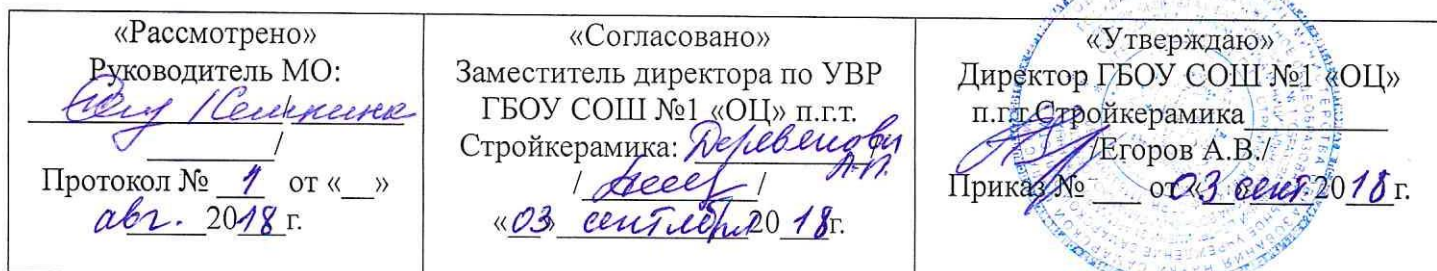 «Рассмотрено»
Руководитель МО:
/
/
Протокол № 1 от «__»
авг. 2018 г.
«Согласовано»
Заместитель директора по УВР
ГБОУ СОШ №1 «ОЦ» п.г.т.
Стройкерамика:
/ /
«03» сентября 2018г.
«Утверждаю»
Директор ГБОУ СОШ №1 «ОЦ»
п.г.т.Стройкерамика
/Егоров А.В./
Приказ № ___ от «03 сент. 2018 г.